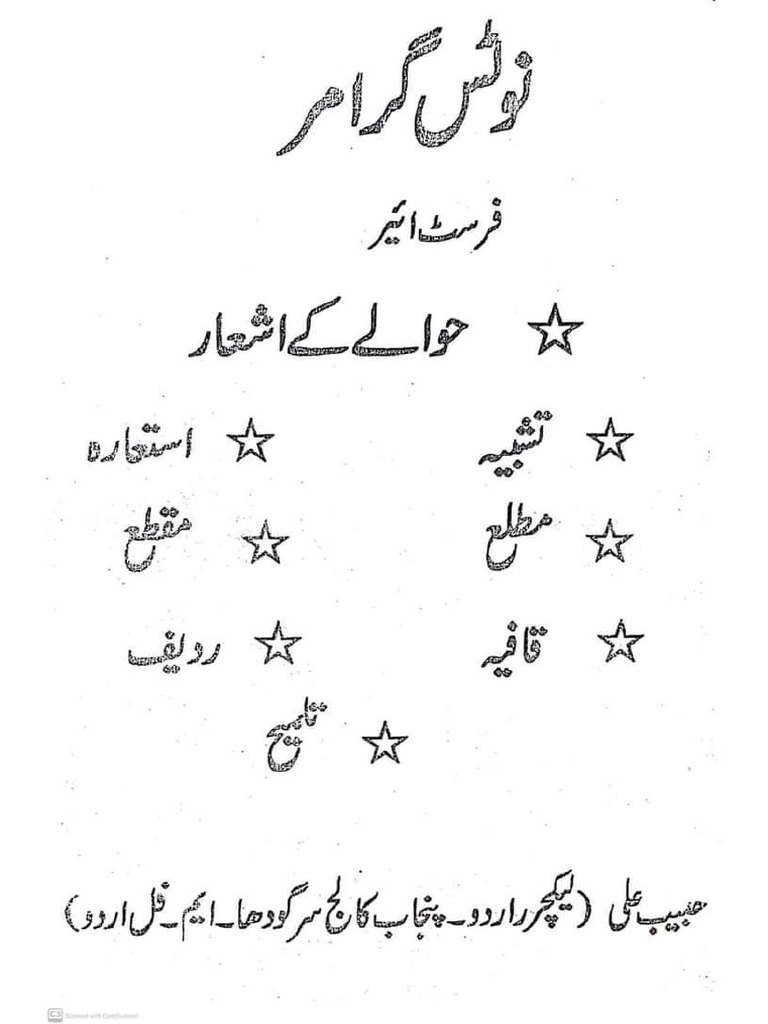 نوٹس گرامر
فرسٹ ائیر
☆ حوالے کے اشعار
☆ تشبیہ ☆ استعارہ
☆ مطلع ☆ مقطع
☆ قافیہ ☆ ردیف
☆ تلمیح
حبیب علی (لیکچرر اردو۔ پنجاب کالج سرگودھا۔ ایم۔ فل اردو)
CS Scanned with CamScanner